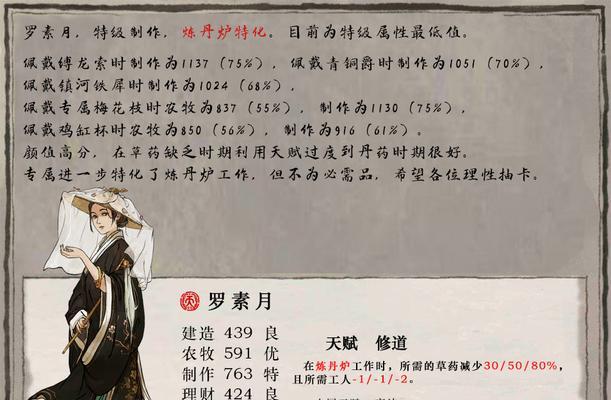 罗素月，特级制作，炼丹炉特化。目前为特级属性最低值。
佩戴缚龙索时制作为1137（75%），佩戴青铜爵时制作为1051（70%），
佩戴镇河铁犀时制作为1024（68%），
佩戴专属梅花枝时农牧为837（55%），制作为1130（75%）。
佩戴鸡缸杯时农牧为850（56%），制作为916（61%）。
颜值高分，在草药缺乏时期利用天赋过度到丹药时期很好。
专属进一步特化了炼丹炉工作，但不为必需品，希望各位理性抽卡。
罗素月
建造 439 良
农牧 591 优
制作 763 特
理财 424 良
天赋 修道
在炼丹炉工作时，所需的草药减少30/50/80%，
且所需工人-1/-1/-2。